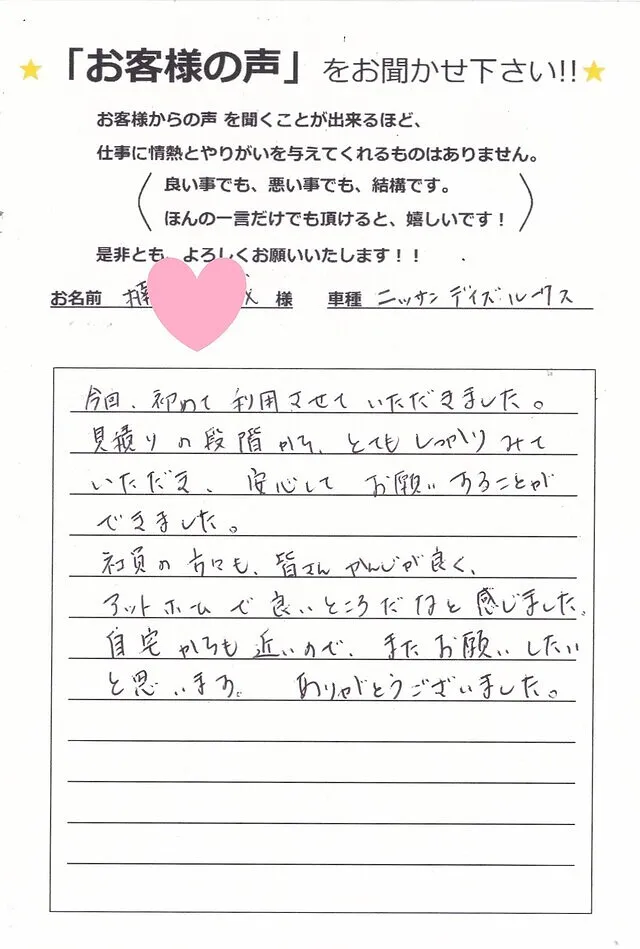 「お客様の声」をお聞かせ下さい!!
お客様からの声 を聞くことが出来るほど、
仕事に情熱とやりがいを与えてくれるものはありません。
良い事でも、悪い事でも、結構です。
ほんの一言だけでも頂けると、嬉しいです！
是非とも、よろしくお願いいたします！！
お名前 様 車種 ニッサン デイズ・ルークス
今回、初めて利用させていただきました。
見積りの段階から、とてもしっかりみて
いただき、安心してお願いすることが
できました。
社員の方々も、皆さんかんじが良く、
アットホームで良いところだなと感じました。
自宅からも近いので、またお願いしたい
と思います。 ありがとうございました。